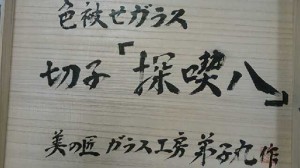 色被せガラス
切子「探喫八」
美の匠 ガラス工房 弟子丸 作